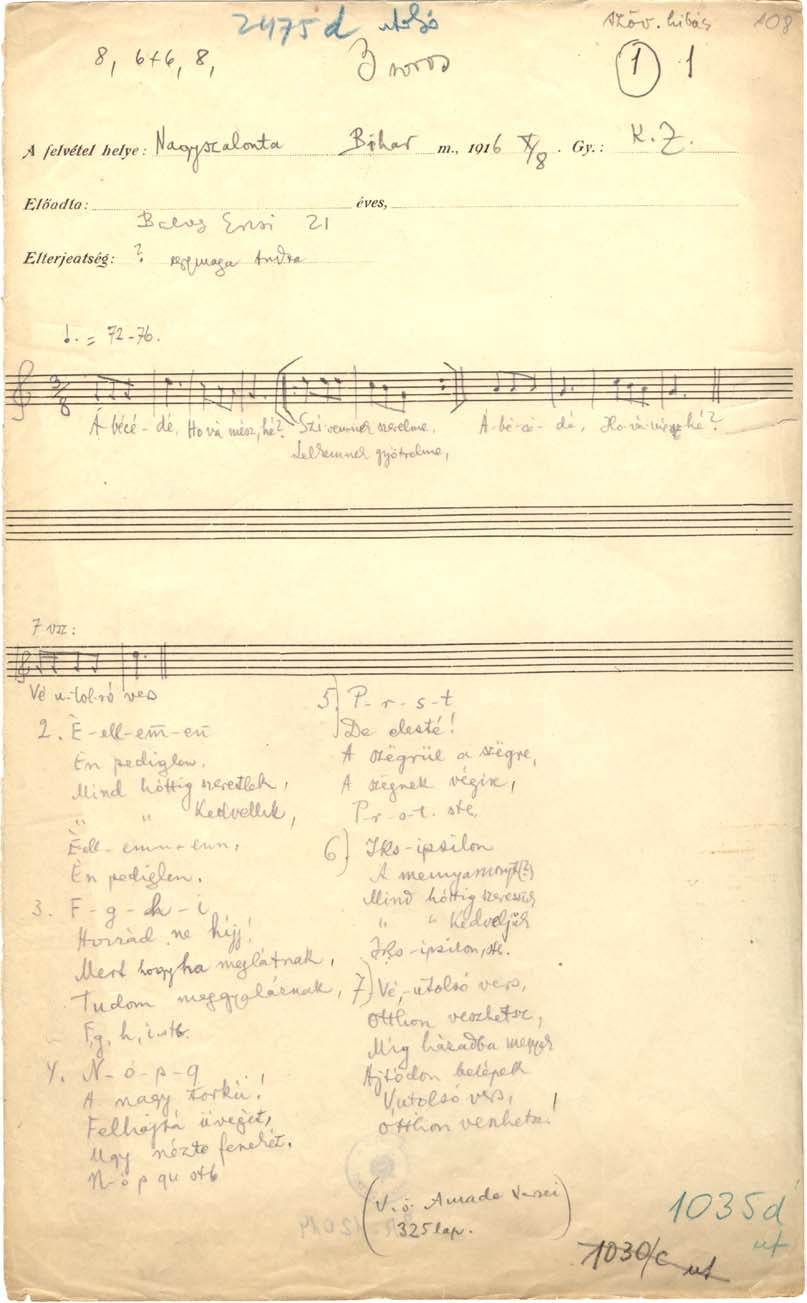 2475 d utolsó szöv. hibás 108
8, 6+6, 8, 3 soros 1 1
A felvétel helye: Nagyszalonta Bihar m., 1916 X/8. Gy.: K. Z.
Előadta: éves,
Erzsi 21
Elterjedtség: ?
♩. = 72-76.
3/8
Á-bécé-dé, Hová mész, hé? Szí-vemnek szerelme, Á-bé-cé-dé, Ho-vá-mész hé?
Lelkemnek gyötrelme,
7 vsz:
Vé u-tol-só vers
2. È-ell-em̄-en̄
Én pediglen.
Mind hóttig szeretlek,
" " Kedvellek,
Èell-emm-enn,
Én pediglen.
3. F-g-h-i
Hozzád ne híjj!
Mert hogyha meglátnak,
Tudom meggyaláznak,
F, g, h, i stb.
4. N-ó-p-q
A nagy torkú!
Felhajtá üvegèt,
Ugy nézte fenekét.
N-ó p qu stb
5) P-r-s-t
De elesté!
A szëgrül a szëgre,
A szégnek végire,
P-r-s-t. stb.
6) Iks-ipsilon
A (?)
Mind hóttig
" " Kedveljék
Iks-ipsilon, stb.
7) Vé,-utolsó vers,
Otthon veszhetsz,
Míg házadba megyek
Ajtódon belépek
Vutolsó vers,
Otthon veszhetsz!
(V. ö. Amade Versei
325 lap.)
1035 d
ut
1030/c ut